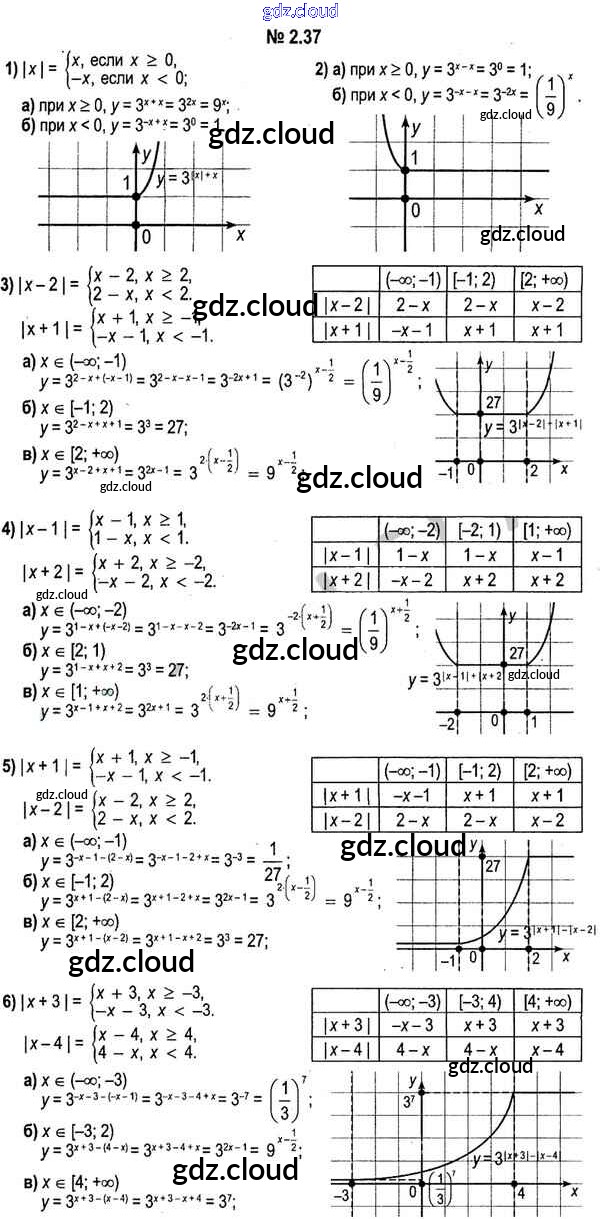 gdz.cloud
№ 2.37
1) |x| = {x, если x ≥ 0,
−x, если x < 0;
а) при x ≥ 0, y = 3^(x + x) = 3^(2x) = 9^x;
б) при x < 0, y = 3^(−x + x) = 3^0 = 1
gdz.cloud
y
1
y = 3^(|x| + x)
0
x
2) а) при x ≥ 0, y = 3^(x − x) = 3^0 = 1;
б) при x < 0, y = 3^(−x − x) = 3^(−2x) = (1/9)^x.
gdz.cloud
y
1
x
gdz.cloud
3) |x − 2| = {x − 2, x ≥ 2,
2 − x, x < 2.
|x + 1| = {x + 1, x ≥ −1,
−x − 1, x < −1.
gdz.cloud
(−∞; −1) [−1; 2) [2; +∞)
|x − 2| 2 − x 2 − x x − 2
|x + 1| −x − 1 x + 1 x + 1
а) x ∈ (−∞; −1)
y = 3^(2 − x + (−x − 1)) = 3^(2 − x − x − 1) = 3^(−2x + 1) = (3^(−2))^(x − 1/2) = (1/9)^(x − 1/2);
б) x ∈ [−1; 2)
y = 3^(2 − x + x + 1) = 3^3 = 27;
в) x ∈ [2; +∞)
y = 3^(x − 2 + x + 1) = 3^(2x − 1) = 3^(2·(x − 1/2)) = 9^(x − 1/2);
gdz.cloud
gdz.cloud
y
27
y = 3^(|x − 2| + |x + 1|)
−1 0 2 x
4) |x − 1| = {x − 1, x ≥ 1,
1 − x, x < 1.
|x + 2| = {x + 2, x ≥ −2,
−x − 2, x < −2.
gdz.cloud
(−∞; −2) [−2; 1) [1; +∞)
|x − 1| 1 − x 1 − x x − 1
|x + 2| −x − 2 x + 2 x + 2
а) x ∈ (−∞; −2)
y = 3^(1 − x + (−x − 2)) = 3^(1 − x − x − 2) = 3^(−2x − 1) = 3^(−2·(x + 1/2)) = (1/9)^(x + 1/2);
б) x ∈ [2; 1)
y = 3^(1 − x + x + 2) = 3^3 = 27;
gdz.cloud
в) x ∈ [1; +∞)
y = 3^(x − 1 + x + 2) = 3^(2x + 1) = 3^(2·(x + 1/2)) = 9^(x + 1/2);
y
27
y = 3^(|x − 1| + |x + 2
gdz.cloud
−2 0 1 x
5) |x + 1| = {x + 1, x ≥ −1,
−x − 1, x < −1.
gdz.cloud
|x − 2| = {x − 2, x ≥ 2,
2 − x, x < 2.
(−∞; −1) [−1; 2) [2; +∞)
|x + 1| −x − 1 x + 1 x + 1
|x − 2| 2 − x 2 − x x − 2
gdz.cloud
а) x ∈ (−∞; −1)
y = 3^(−x − 1 − (2 − x)) = 3^(−x − 1 − 2 + x) = 3^(−3) = 1/27;
б) x ∈ [−1; 2)
y = 3^(x + 1 − (2 − x)) = 3^(x + 1 − 2 + x) = 3^(2x − 1) = 3^(2·(x − 1/2)) = 9^(x − 1/2);
в) x ∈ [2; +∞)
y = 3^(x + 1 − (x − 2)) = 3^(x + 1 − x + 2) = 3^3 = 27;
y
27
y = 3^(|x + 1| − |x − 2|)
−1 0 2 x
gdz.cloud
6) |x + 3| = {x + 3, x ≥ −3,
−x − 3, x < −3.
|x − 4| = {x − 4, x ≥ 4,
4 − x, x < 4.
gdz.cloud
(−∞; −3) [−3; 4) [4; +∞)
|x + 3| −x − 3 x + 3 x + 3
|x − 4| 4 − x 4 − x x − 4
gdz.cloud
а) x ∈ (−∞; −3)
y = 3^(−x − 3 − (−x − 1)) = 3^(−x − 3 − 4 + x) = 3^(−7) = (1/3)^7;
б) x ∈ [−3; 2)
y = 3^(x + 3 − (4 − x)) = 3^(x + 3 − 4 + x) = 3^(2x − 1) = 9^(x − 1/2);
в) x ∈ [4; +∞)
gdz.cloud
y = 3^(x + 3 − (x − 4)) = 3^(x + 3 − x + 4) = 3^7;
y
3^7
y = 3^(|x + 3| − |x − 4|)
−3 0 (1/3)^7 4 x